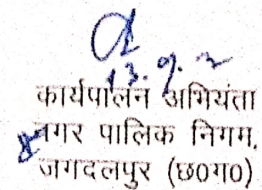 13.9.2
कार्यपालन अभियंता
नगर पालिक निगम,
जगदलपुर (छ0ग0)